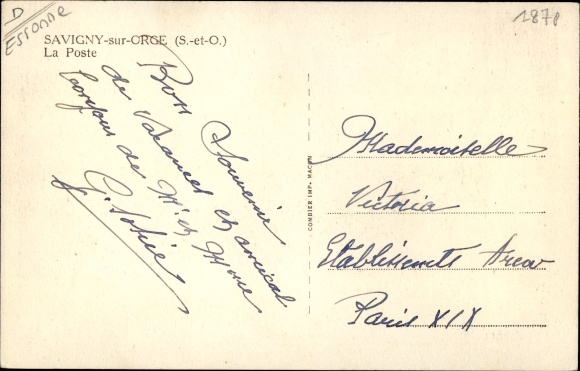 D
ESSONNE
1878
SAVIGNY-sur-ORGE (S.-et-O.)
La Poste
Bon Souvenir
de Vacances et amical
bonjour de Mr et Mme
G.
COMBIER IMP. MACON
Mademoiselle
Victoria
Etablissements
Paris XIX